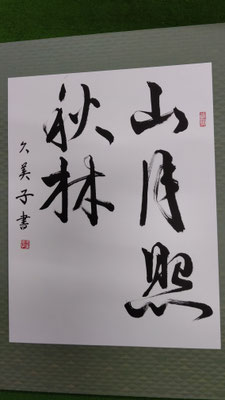 山月照
秋林
久美子書